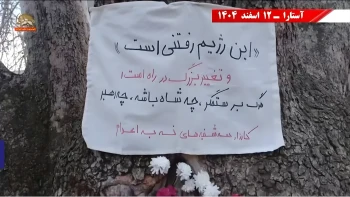 آستارا ـ ۱۲ اسفند ۱۴۰۴
«این رژیم رفتنی است»
و تغییر بزرگ در راه است!
مرگ بر ستمگر، چه شاه باشه، چه رهبر
کارزار سه‌شنبه‌های نه به اعدام